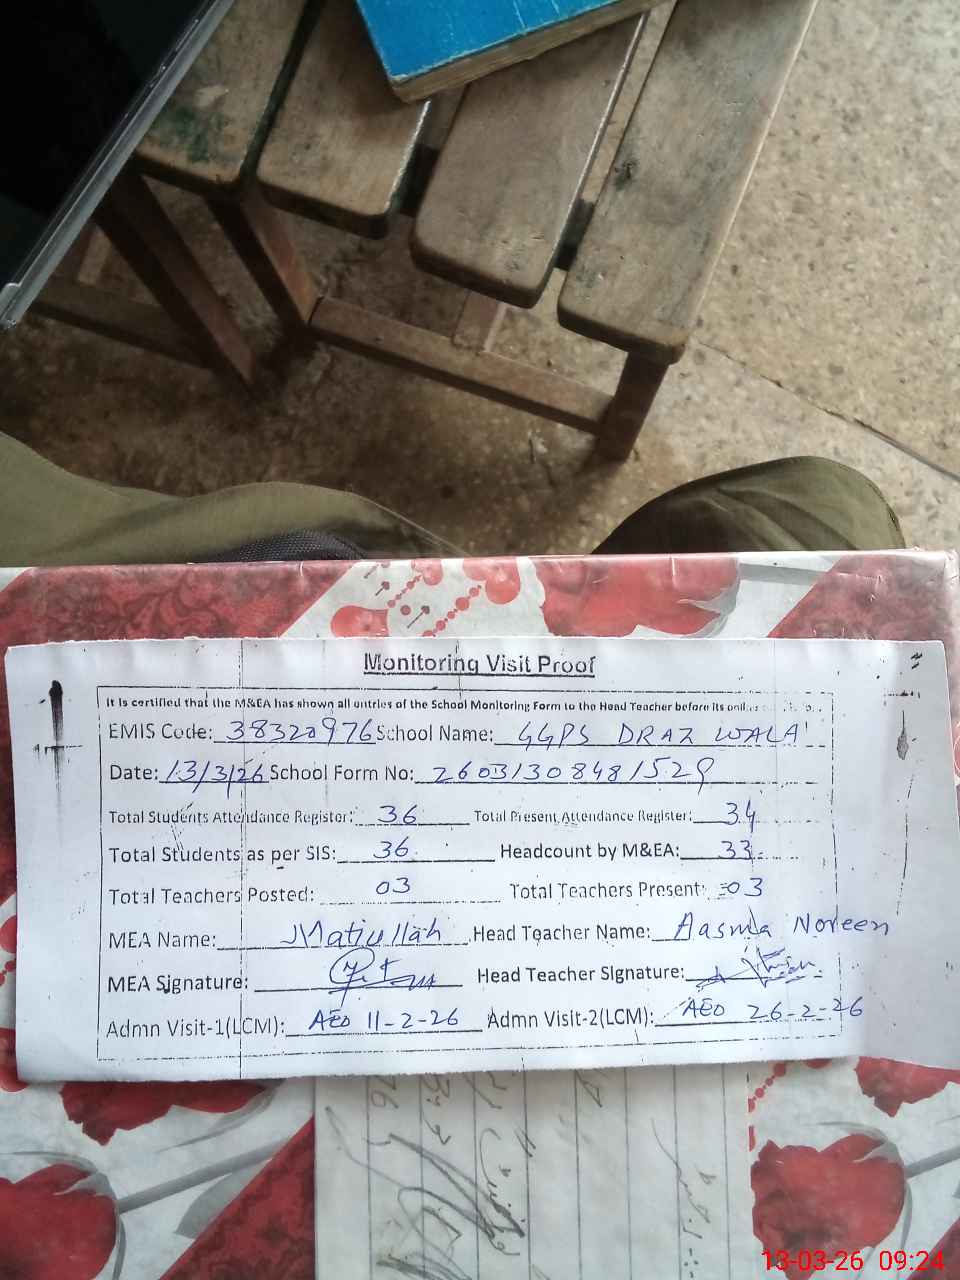 Monitoring Visit Proof
It is certified that the M&EA has shown all entries of the School Monitoring Form to the Head Teacher before its
EMIS Code: 38320976 School Name: GGPS DRAZ WALA
Date: 13/3/26 School Form No: 26031308481529
Total Students Attendance Register: 36 Total Present Attendance Register: 34
Total Students as per SIS: 36 Headcount by M&EA: 33
Total Teachers Posted: 03 Total Teachers Present: 03
MEA Name: Matiullah Head Teacher Name: Aasma Noreen
MEA Signature: Head Teacher Signature:
Admn Visit-1(LCM): AEO 11-2-26 Admn Visit-2(LCM): AEO 26-2-26
13-03-26 09:24